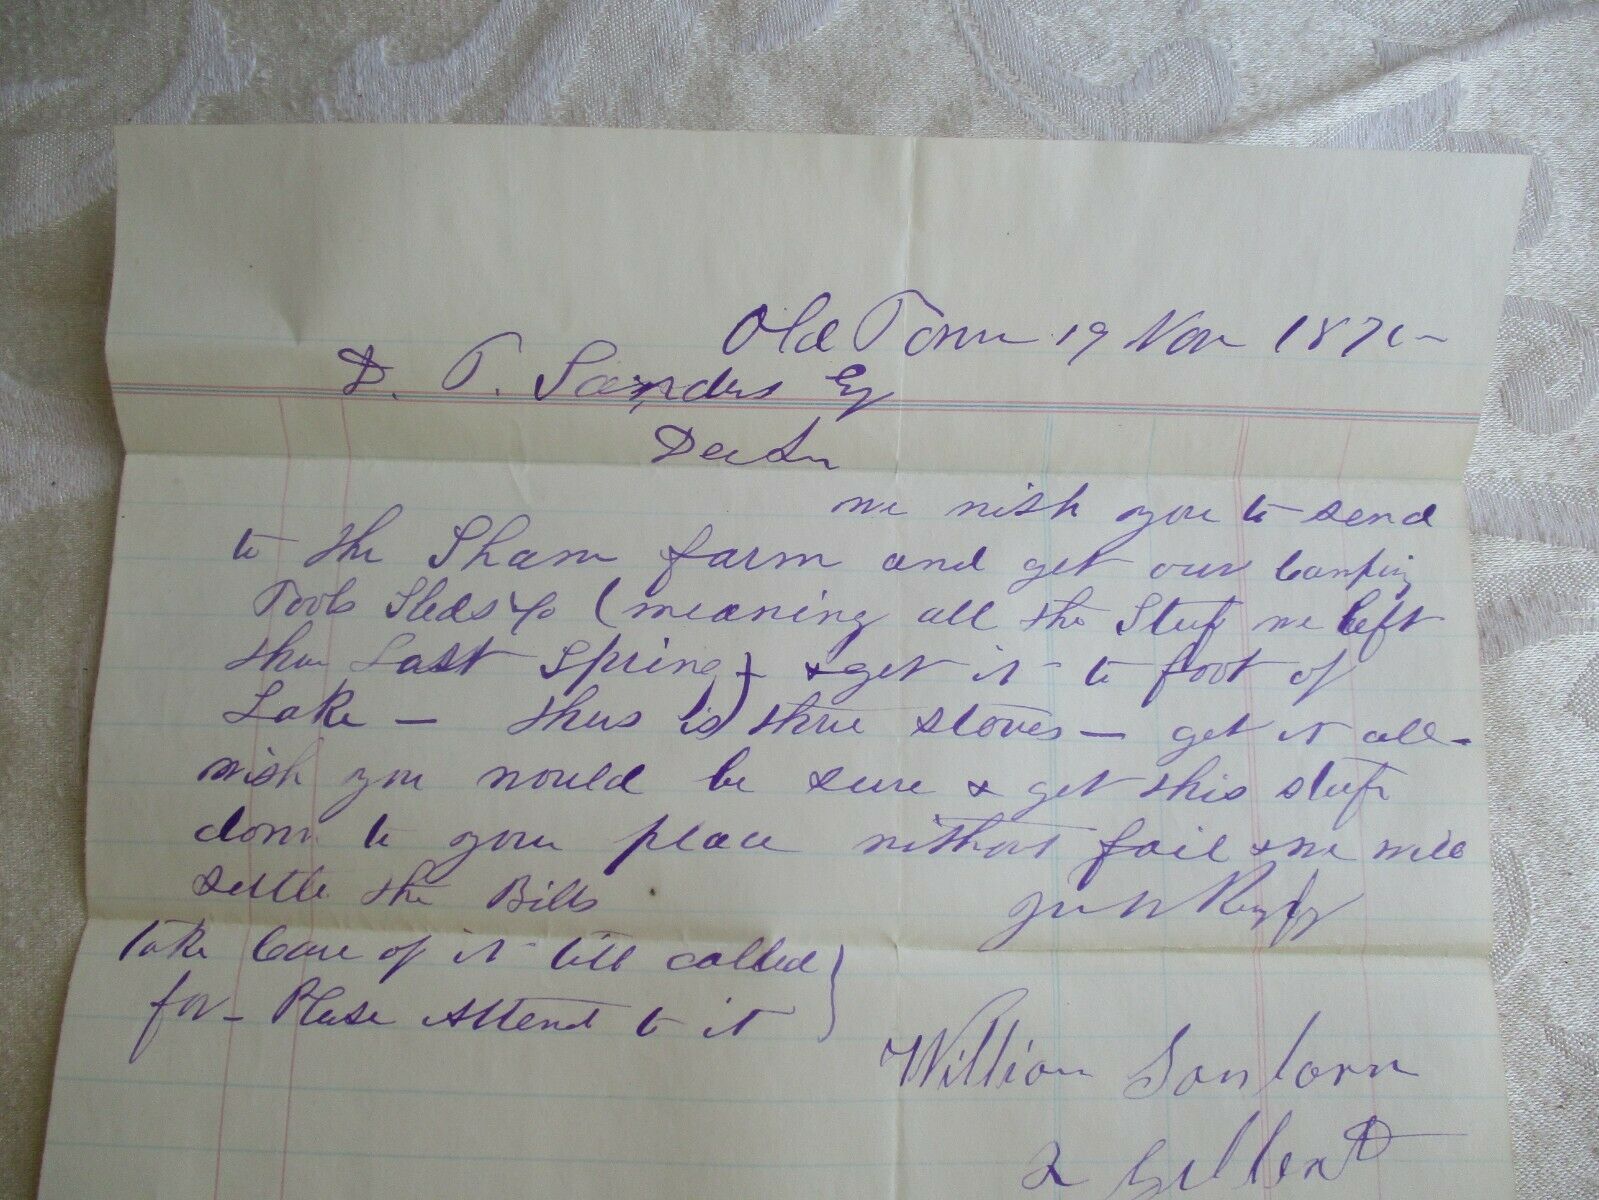 Old Town 19 Nov 187
D. T. Sanders Esq
Dear Sir
we wish you to send
to the Shaw farm and get our Camping
Tools Sleds &c (meaning all the Stuff we left
thare Last Spring) & get it to foot of
Lake — thare is three stoves — get it all -
wish you would be sure & get this stuff
down to your place without fail & we will
settle the Bills
Yours
take Care of it till called
for - Please Attend to it
William Sanborn
& Gilbert